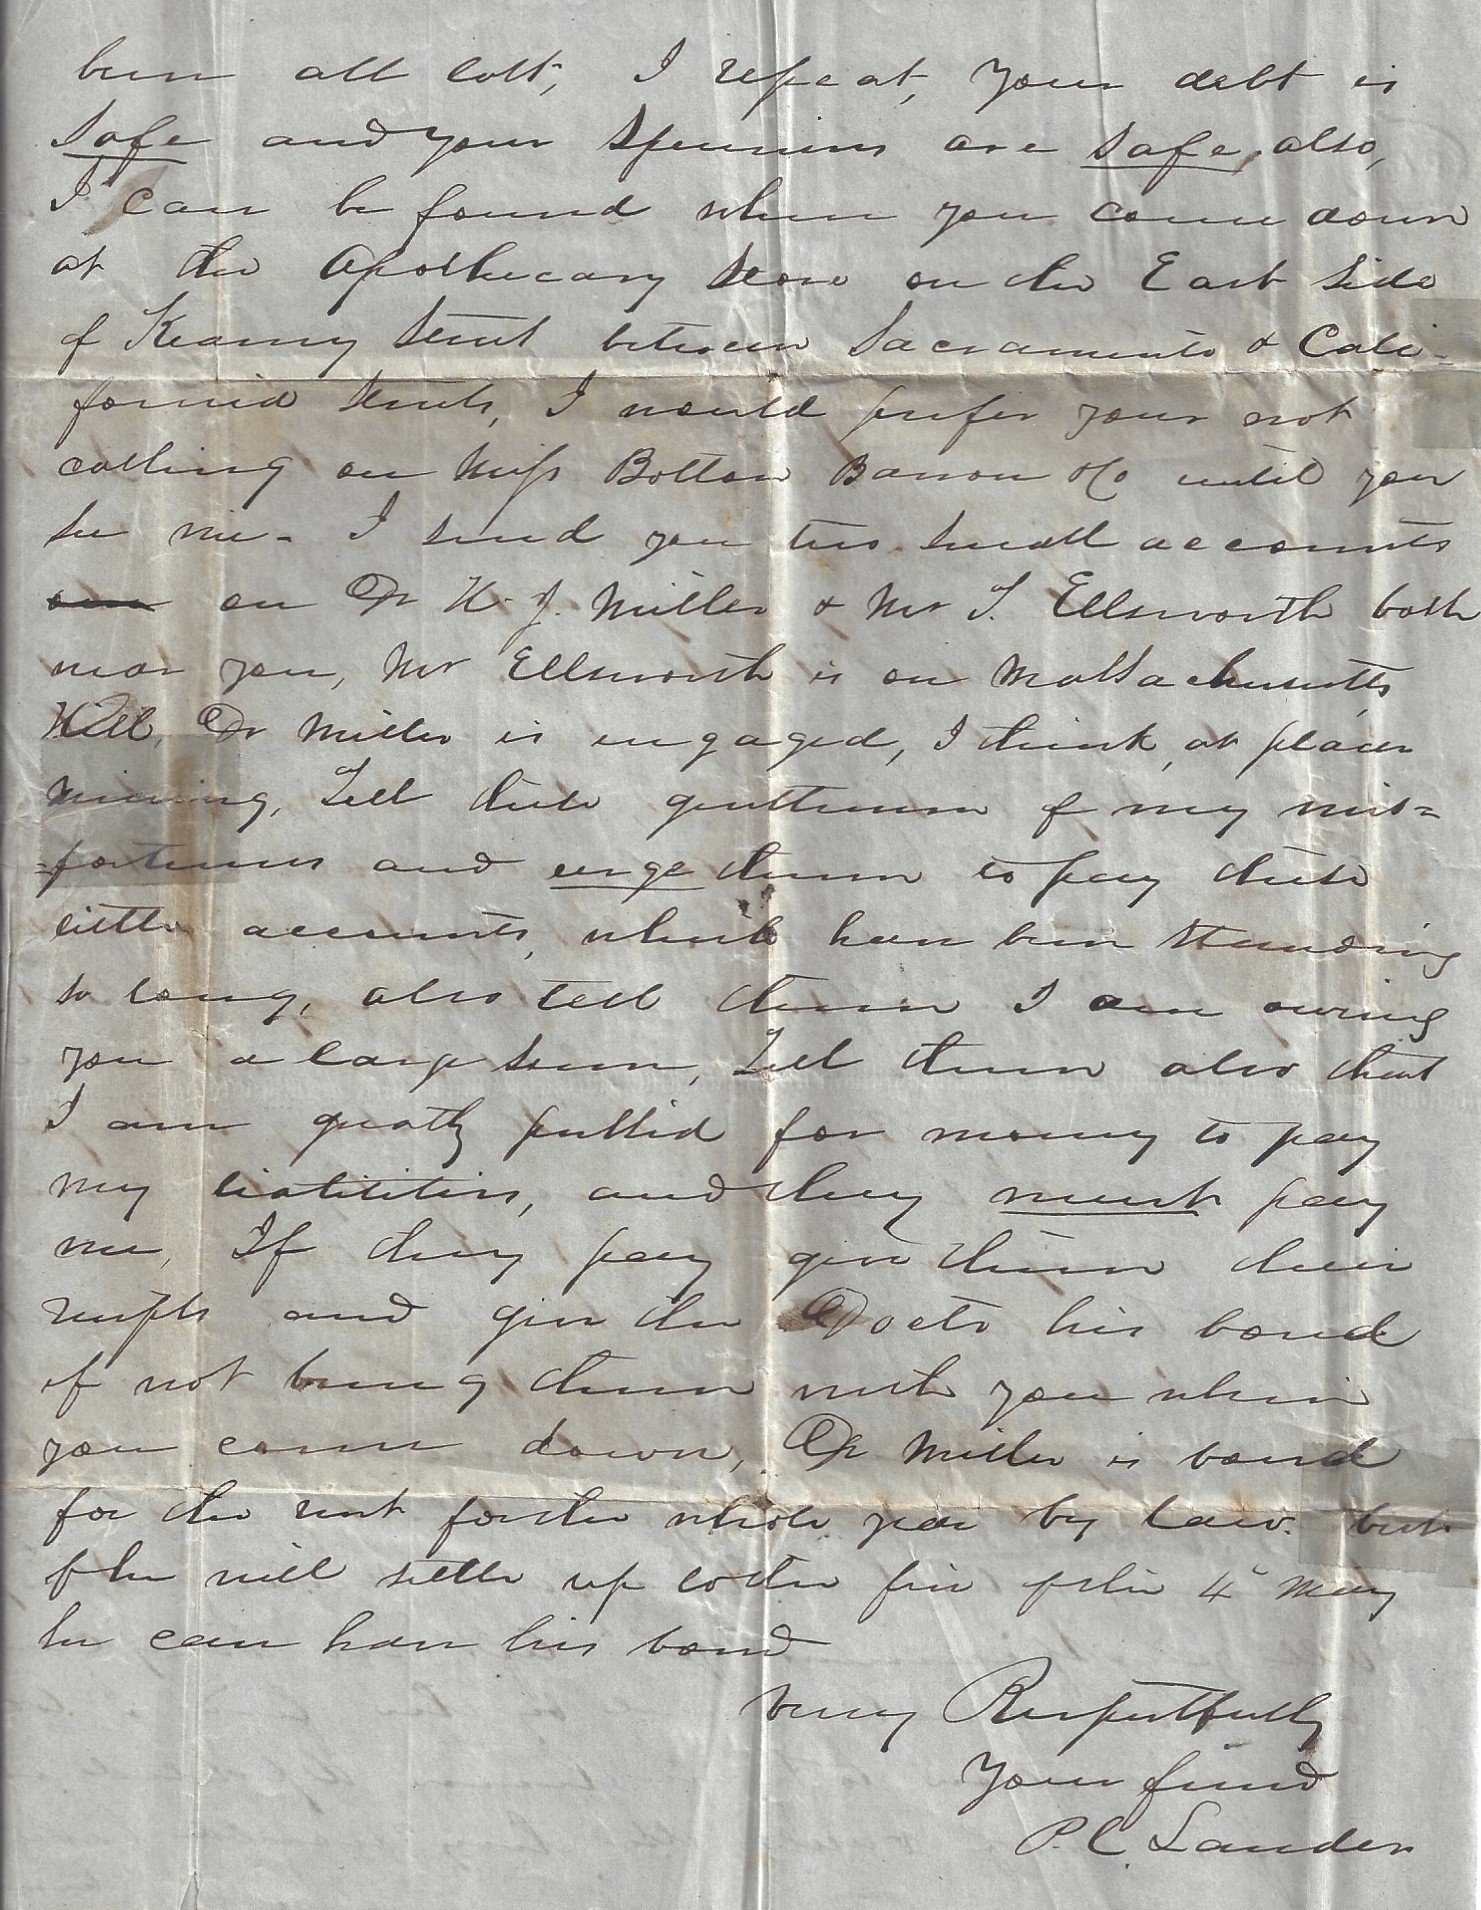 been all lost, I repeat, your debt is
safe and your specimens are safe also,
I can be found when you come down
at the Apothecary Store on the East Side
of Kearny Street between Sacramento & Cali-
fornia Streets, I would prefer your not
calling on Messrs Barron & Co until you
see me - I send you two small accounts
on Dr H. J. Miller & Mr T. Ellsworth both
near you, Mr Ellsworth is on Massachusetts
Hill, Dr Miller is engaged, I think, at placer
mining, Tell these gentlemen of my mis=
=fortunes and urge them to pay these
little accounts, which have been standing
so long, also tell them I am owing
you a large sum, Tell them also that
I am greatly pushed for money to pay
my liabilities, and they must pay
me, If they pay give them their
receipts and give the Doctr his bond
if not bring them with you when
you come down, Dr Miller is bound
for the rent for the whole year by law. but
if he will settle up to the 4" May
he can have his bond
Very Respectfully
Your friend
P. C. Lander